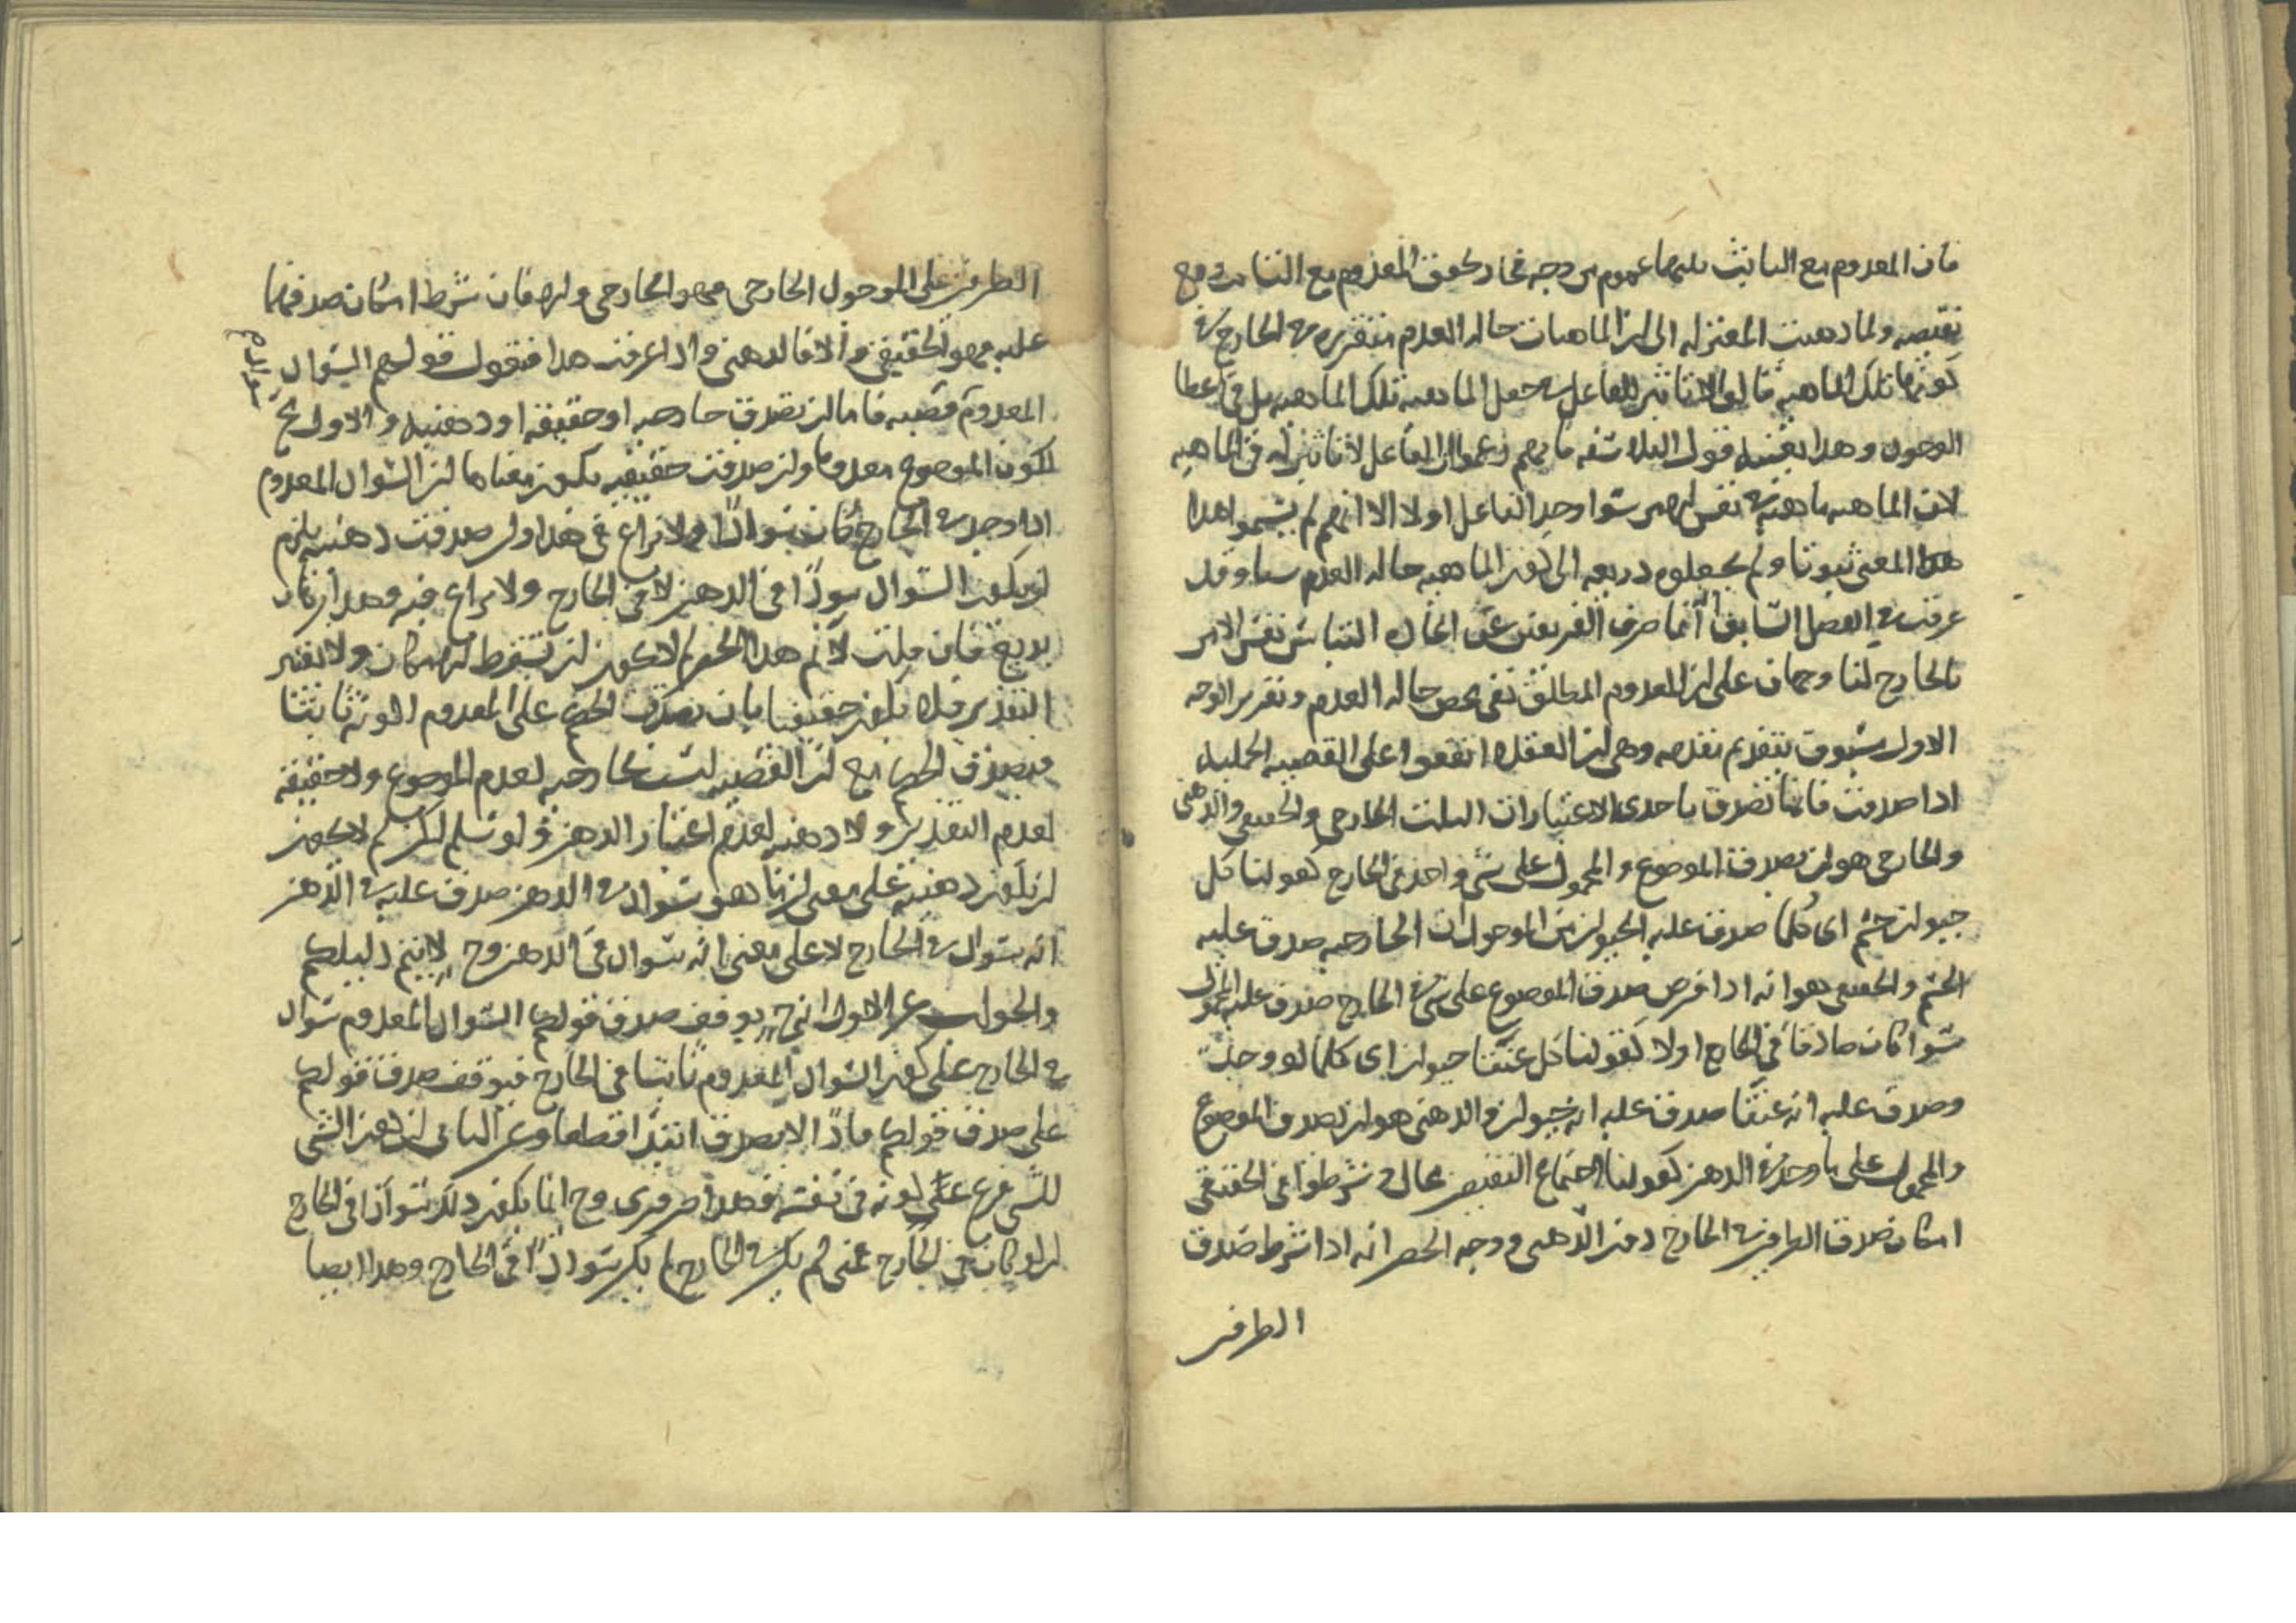 فان المعدوم مع الثابت بينهما عموم من وجه فجاز كون المعدوم مع الثابت ومع
نقيضه ولما ذهبت المعتزلة الى ان الماهيات حالة العدم متقررة في الخارج في
كونها تلك الماهية قالوا لا تاثير للفاعل في جعل الماهية تلك الماهية بل في اعطا
الوجود وهذا بعينه قول الفلاسفه فانهم زعموا ان الفاعل لا تاثير له في الماهيه
لان الماهيه ماهيه في نفس الامر سوا وجد الفاعل اولا الا انهم لم يسموا هذا
هذا المعنى ثبوتا ولم يجعلوه ذريعه الى كون الماهيه حاله العدم شيا وقد
عرفت في الفصل السابق انما صرف الفريقين عن الحال التباس نفس الامر
بالخارج لنا وجهان على ان المعدوم المطلق نفي محض حاله العدم وتقرير الوجه
الاول مسبوق بتقديم مقدمه وهى ان العقلا اتفقوا على القضيه الحمليه
اذا صدقت فانما تصدق باحدى الاعتبارات الثلث الخارجى والحقيقى والذهنى
والخارجى هو ان يصدق الموضوع والمحمول على شى واحد فى الخارج كقولنا كل
حيوان جسم اى كلما صدق عليه الحيوان من الموجودات الخارجيه صدق عليه
الجسم والحقيقى هو انه اذا فرض صدق الموضوع على شى فى الخارج صدق عليه المحمول
سوا كان صادقا فى الخارج اولا كقولنا كل عنقا حيوان اى كلما لو وجدت
وصدق عليه انه عنقا صدق عليه انه حيوان والذهنى هو ان يصدق الموضوع
والمحمول على ما وجد فى الذهن كقولنا اجتماع النقيضين محال وشرطوا فى الحقيقى
امكان صدق الطرفين فى الخارج دون الذهنى ووجه الحصر انه اذا شرط صدق
الطرفين
الطرفين على الموجود الخارجى فهو الخارجى والا فان شرط امكان صدقهما
عليه فهو الحقيقى والا فالذهنى واذا عرفت هذا فنقول قولكم السواد
المعدوم قضيه فاما ان تصدق خارجيه او حقيقة او ذهنيه والاول مح
لكون الموضوع معدوما وان صدقت حقيقيه يكون معناها ان السواد المعدوم
اذا وجد فى الخارج كان سوادا ولا نزاع فى هذا وان صدقت ذهنيه يلزم
ان يكون السواد سوادا فى الذهن لا فى الخارج ولا نزاع فيه وهذا برهان
بديع فان قلت لا نم هذا الحصر لم لا يكون ان يشترط الامكان ولا يعتبر
التقدير فلا يكون حقيقيا بان يصدق الحكم على المعدوم الكونه ثابتا
فيصدق الحكم مع ان القضيه ليست خارجيه لعدم الموضوع ولا حقيقة
لعدم التقدير ولا ذهنيه لعدم اعتبار الذهن ولو سلم لكن لم لا يكون
ان يكون ذهنيه على معنى ان ما هو سواد فى الذهن صدق عليه فى الذهن
انه سواد فى الخارج لا على معنى انه سواد فى الذهن وح لا يتم دليلكم
والجواب عن الاول انه ح يتوقف صدق قولكم السواد المعدوم سواد
فى الخارج على كون السواد المعدوم ثابتا فى الخارج فيتوقف صدق قولكم
على صدق قولكم فاذا لا يصدق ابتدا قطعا وعن الثانى ان كون الشى
للشى فرع على كونه فى نفسه وهذا ضرورى وح انما يكون ذلك سوادا فى الخارج
ان لو كان فى الخارج فمتى لم يكن فى الخارج لم يكن سوادا فى الخارج وهذا ايضا